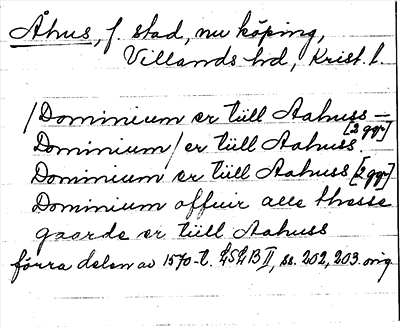 Åhus, f. stad, nu köping,
Villands hd, Krist. l.
/Dominium er tiill Aahuss –
[2 ggr]
Dominium/ er tiill Aahuss.
Dominium er tiill Aahuss [2 ggr]
Dominium offuir alle thesse
gaarde er tiill Aahuss
förra delen av 1570-t. LSLB II, ss. 202, 203. orig